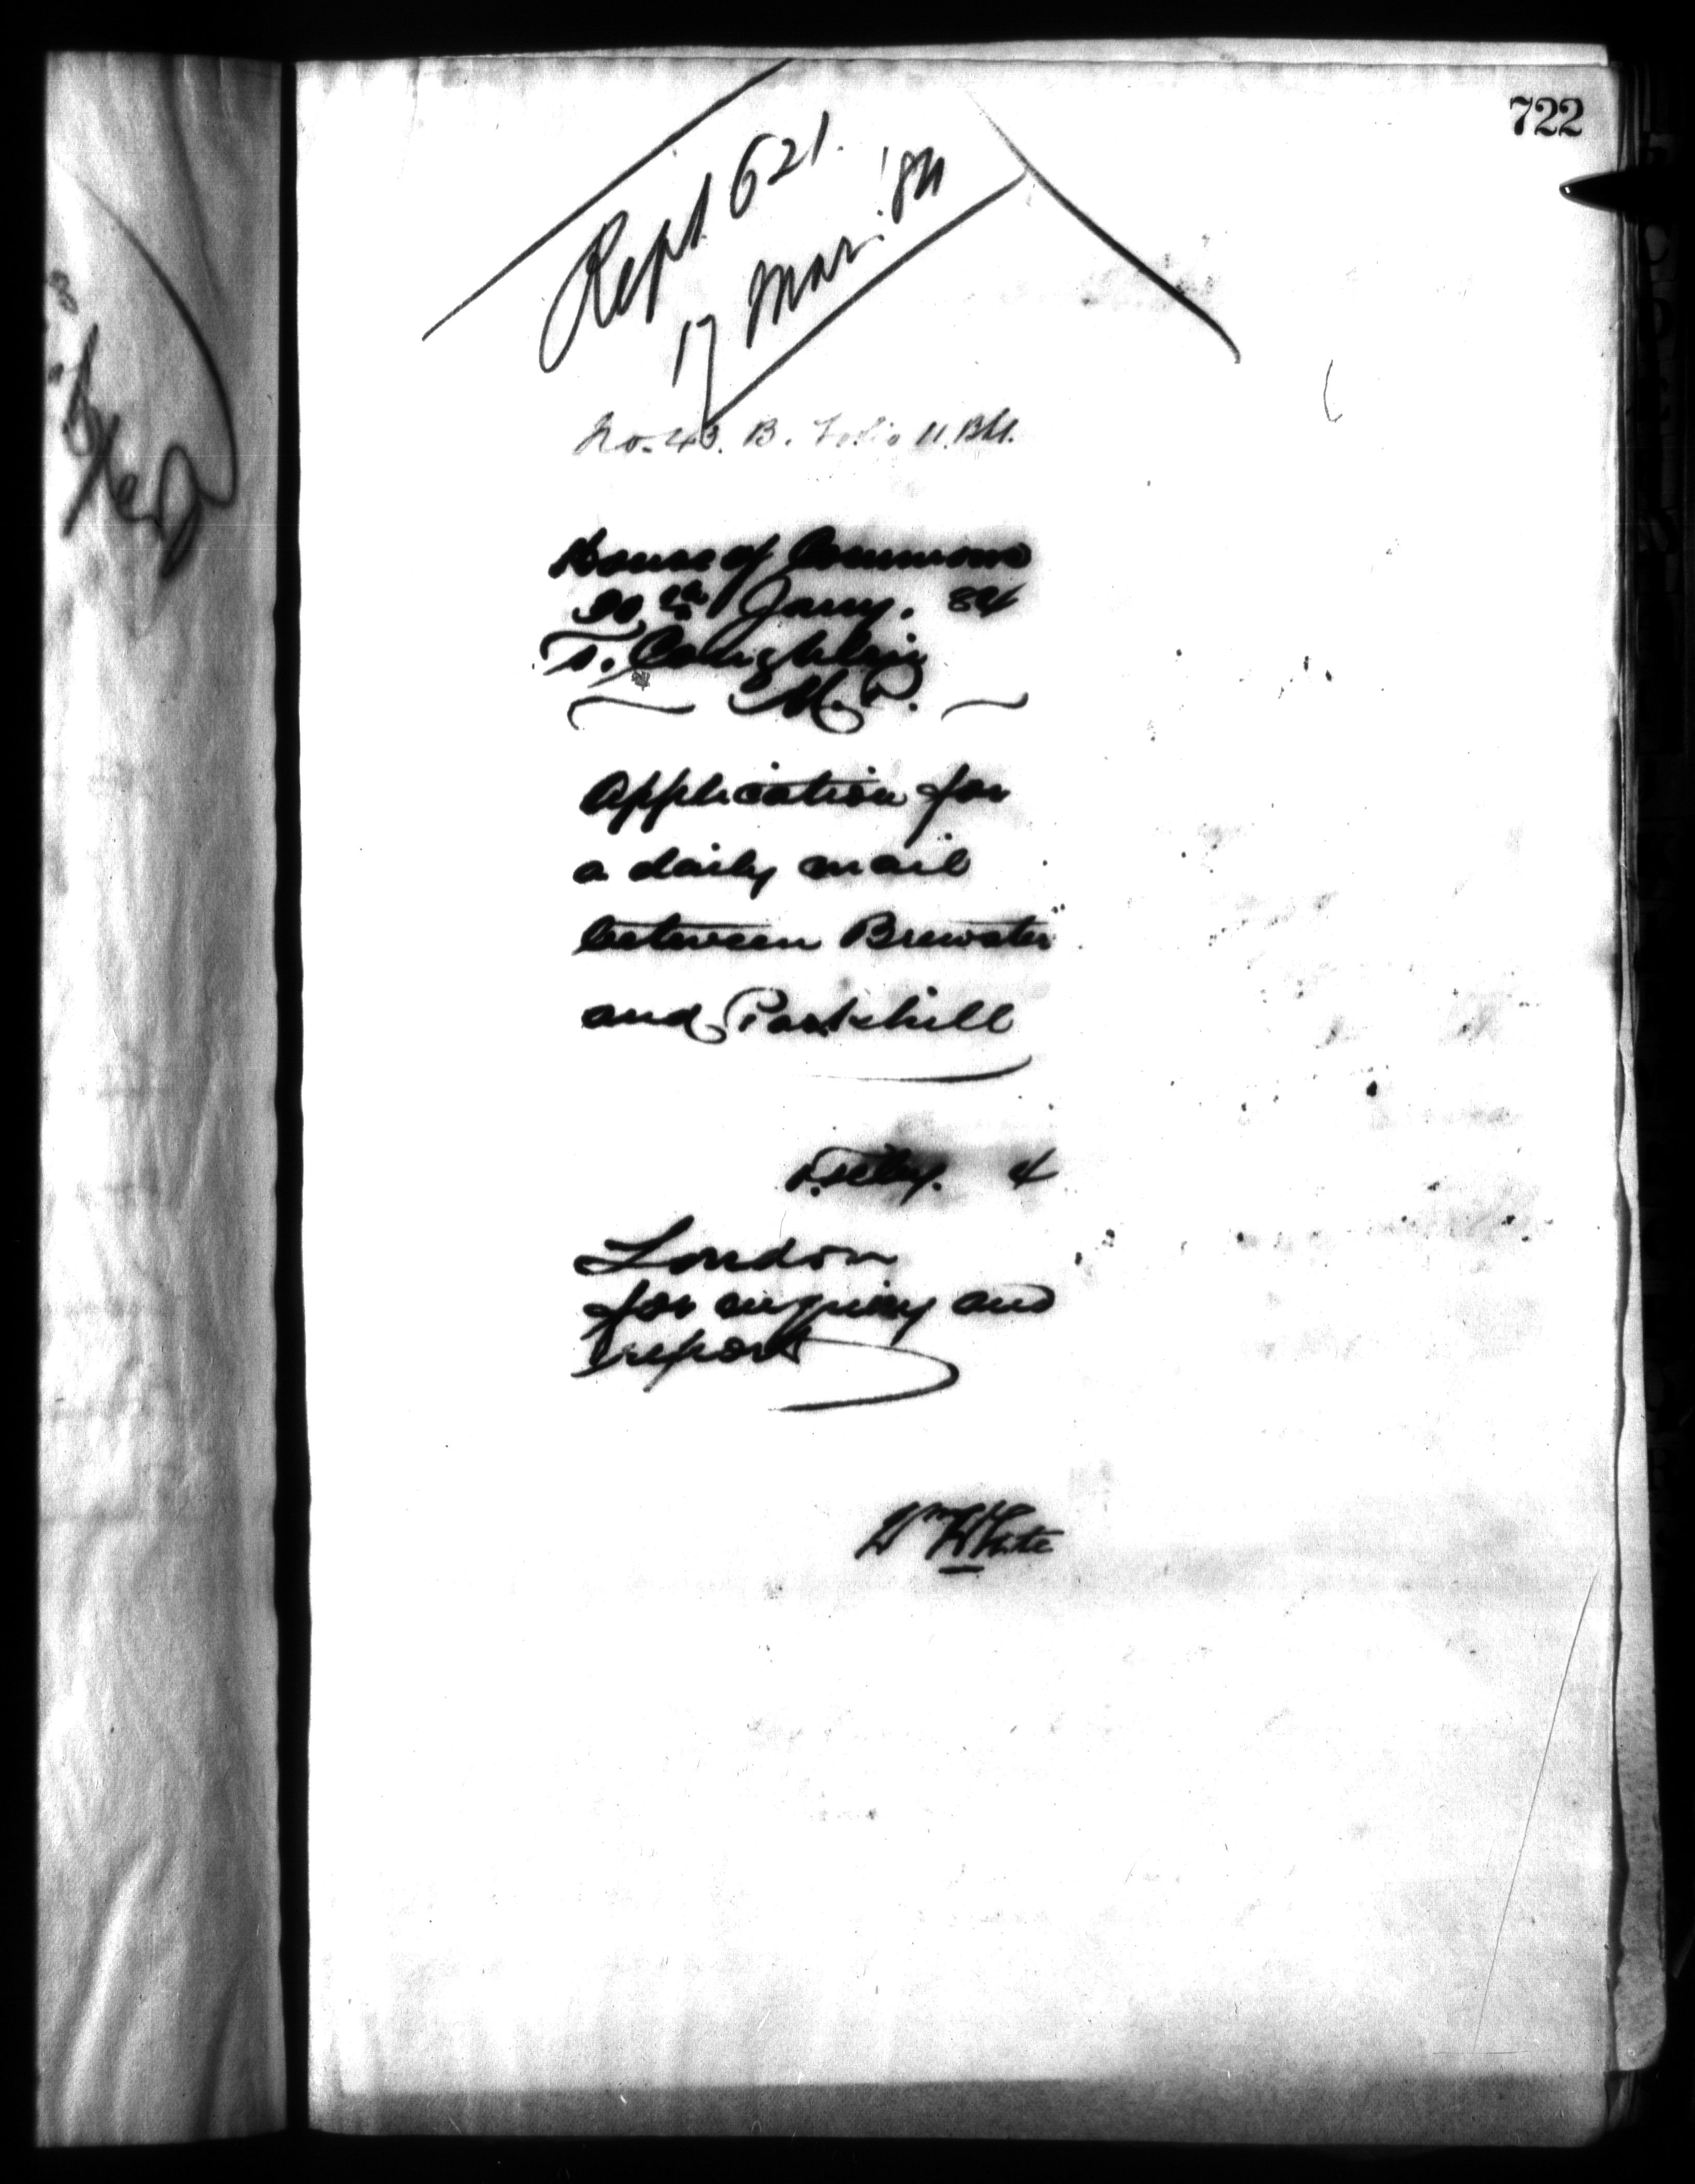 722
Rept 621.
17 Mar. '84
No. 43. B. Folio 11.
House of Commons
30th Jany. 84
T. Coughlin
M.P.
Application for
a daily mail
between Brewster
and Parkhill
4
London
for enquiry and
report
Wm White